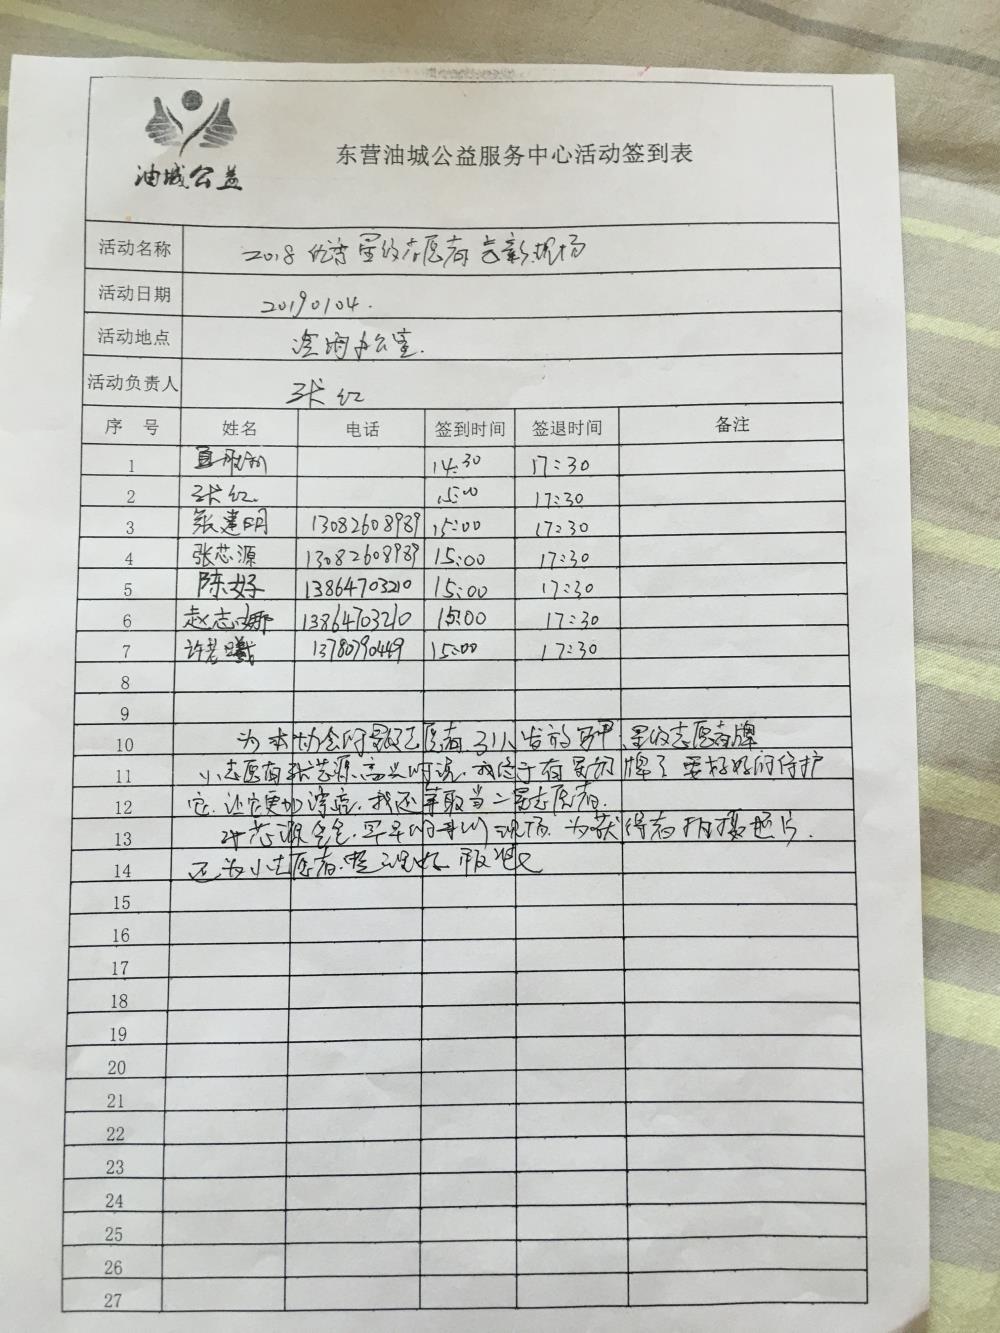 油城公益
东营油城公益服务中心活动签到表
活动名称 2018 优秀星级志愿者 现场
活动日期 20190104.
活动地点 办公室.
活动负责人 张红
序 号 姓名 电话 签到时间 签退时间 备注
1 14:30 17:30
2 张红. 15:00 17:30
3 张建明 13082608989 15:00 17:30
4 张芯源 13082608989 15:00 17:30
5 陈好 13864703210 15:00 17:30
6 赵志娜 13864703210 15:00 17:30
7 许 曦 13780790449 15:00 17:30
8
9
10 为本协会的 志愿者 发放 星级志愿者牌
11 小志愿者张芯源高兴的说,我终于有星级牌了 要好好的保护
12 它.让它更加漂亮.我还争取当二星志愿者.
13 芯源爸爸.早早的来到现场.为获得者拍摄照片.
14 还为小志愿者.整理好
15
16
17
18
19
20
21
22
23
24
25
26
27